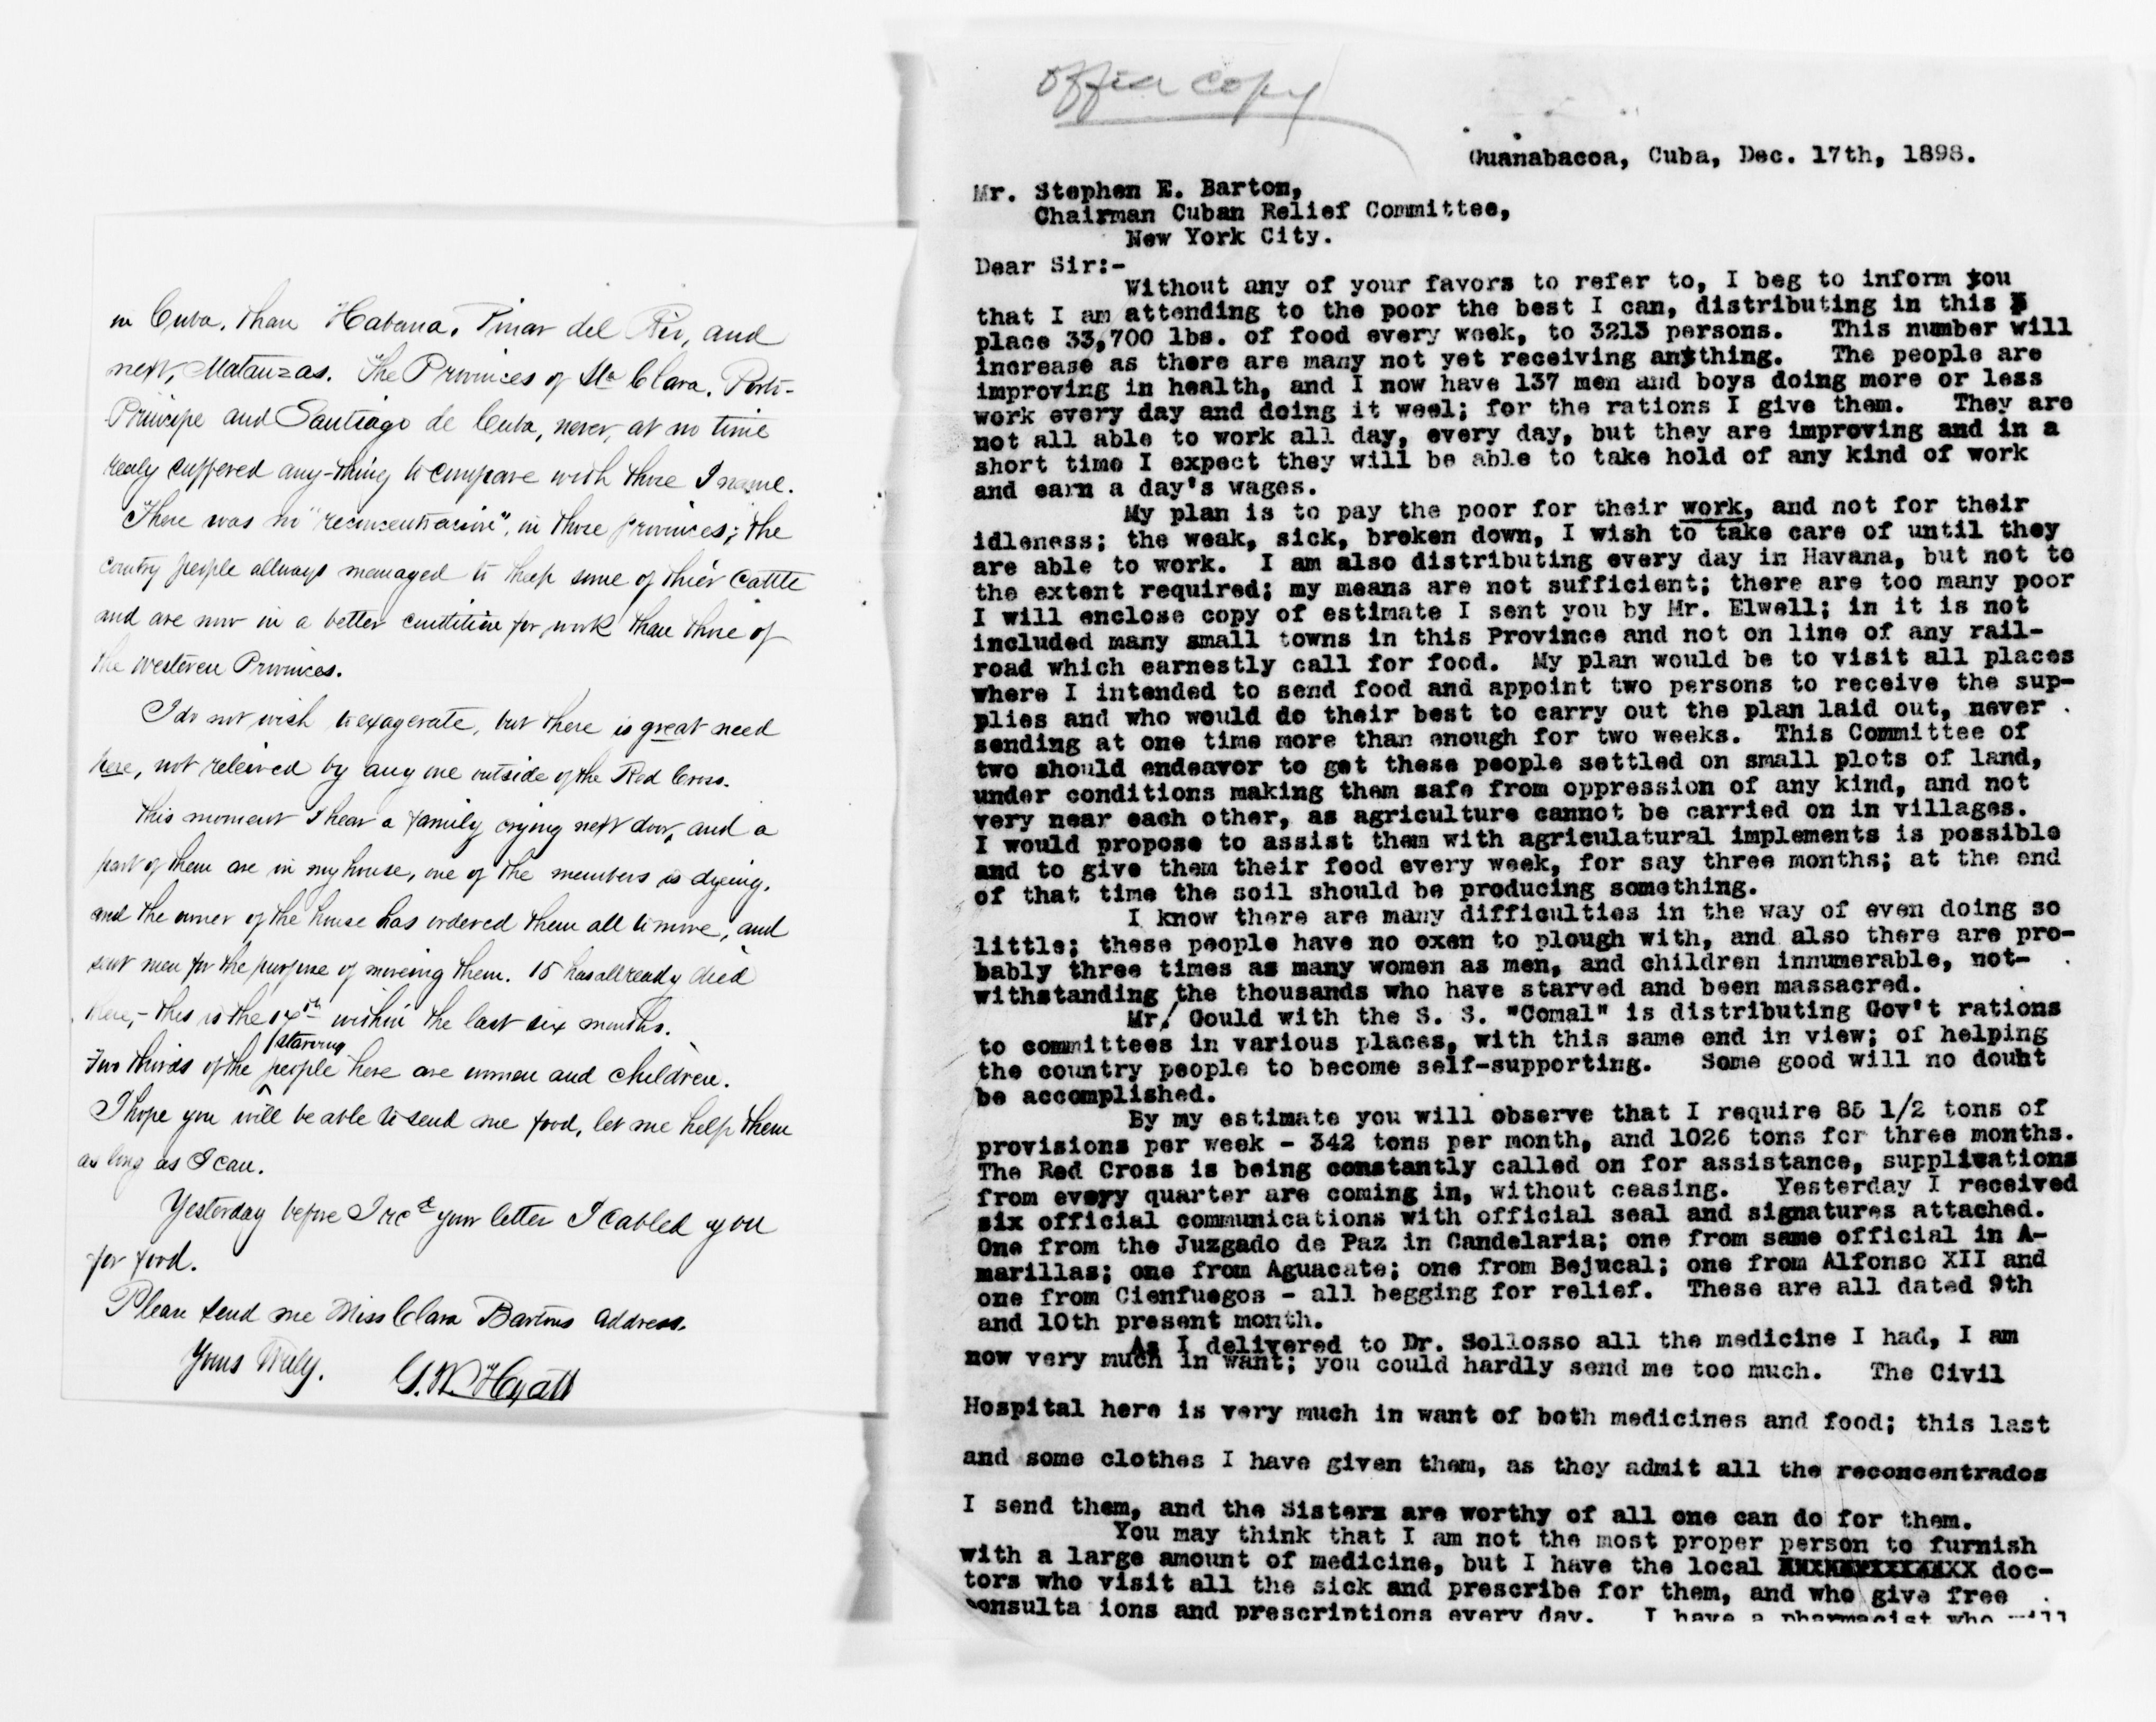 in Cuba. than Habana, Pinar del Rio, and
next, Matanzas. The Provinces of Sta Clara. Porto-
Principe and Santiago de Cuba, never, at no time
realy suffered any-thing to compare with those I name.
There was no "reconcentracion", in those provinces; the
country people allways managed to keep some of their Cattle
and are now in a better condition for work than those of
the westeren Provinces.
I do not wish to exagerate, but there is great need
here, not releived by any one outside of the Red Cross.
This moment I hear a family crying next door, and a
part of them are in my house, one of the members is dyeing,
and the owner of the house has ordered them all to move, and
sent men for the purpose of moveing them. 15 has allready died
here, - this is the 6th within the last six months.
Two thirds of the starving people here are women and children.
I hope you will be able to send me food, let me help them
as long as I can.
Yesterday before I recd your letter I cabled you
for food.
Please send me Miss Clara Bartons address.
Yours Truly.
G.W. Hyatt
Office copy
Guanabacoa, Cuba, Dec. 17th, 1898.
Mr. Stephen E. Barton,
Chairman Cuban Relief Committee,
New York City.
Dear Sir:-
Without any of your favors to refer to, I beg to inform you
that I am attending to the poor the best I can, distributing in this
place 33,700 lbs. of food every week, to 3213 persons. This number will
increase as there are many not yet receiving anything. The people are
improving in health, and I now have 137 men and boys doing more or less
work every day and doing it weel; for the rations I give them. They are
not all able to work all day, every day, but they are improving and in a
short time I expect they will be able to take hold of any kind of work
and earn a day's wages.
My plan is to pay the poor for their work, and not for their
idleness; the weak, sick, broken down, I wish to take care of until they
are able to work. I am also distributing every day in Havana, but not to
the extent required; my means are not sufficient; there are too many poor
I will enclose copy of estimate I sent you by Mr. Elwell; in it is not
included many small towns in this Province and not on line of any rail-
road which earnestly call for food. My plan would be to visit all places
where I intended to send food and appoint two persons to receive the sup-
plies and who would do their best to carry out the plan laid out, never
sending at one time more than enough for two weeks. This Committee of
two should endeavor to get these people settled on small plots of land,
under conditions making them safe from oppression of any kind, and not
very near each other, as agriculture cannot be carried on in villages.
I would propose to assist them with agriculatural implements is possible
and to give them their food every week, for say three months; at the end
of that time the soil should be producing something.
I know there are many difficulties in the way of even doing so
little; these people have no oxen to plough with, and also there are pro-
bably three times as many women as men, and children innumerable, not-
withstanding the thousands who have starved and been massacred.
Mr. Gould with the S. S. "Comal" is distributing Gov't rations
to committees in various places, with this same end in view; of helping
the country people to become self-supporting. Some good will no doubt
be accomplished.
By my estimate you will observe that I require 85 1/2 tons of
provisions per week - 342 tons per month, and 1026 tons for three months.
The Red Cross is being constantly called on for assistance, supplications
from every quarter are coming in, without ceasing. Yesterday I received
six official communications with official seal and signatures attached.
One from the Juzgado de Paz in Candelaria; one from same official in A-
marillas; one from Aguacate; one from Bejucal; one from Alfonso XII and
one from Cienfuegos - all begging for relief. These are all dated 9th
and 10th present month.
As I delivered to Dr. Sollosso all the medicine I had, I am
now very much in want; you could hardly send me too much. The Civil
Hospital here is very much in want of both medicines and food; this last
and some clothes I have given them, as they admit all the reconcentrados
I send them, and the Sisters are worthy of all one can do for them.
You may think that I am not the most proper person to furnish
with a large amount of medicine, but I have the local doc-
tors who visit all the sick and prescribe for them, and who give free
consulta ions and prescriptions every day. I have a pharmacist who will